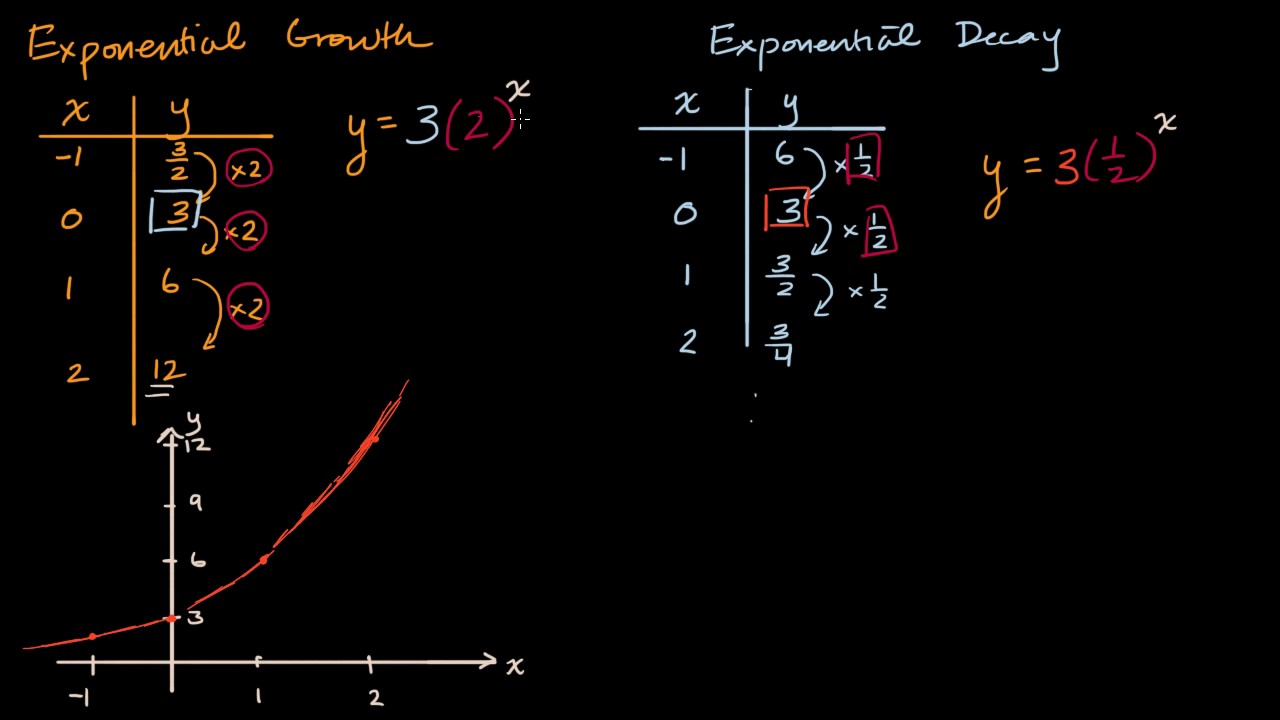 Exponential Growth
x y
-1 3/2 ×2
0 3 ×2
1 6 ×2
2 12
y = 3(2)^x
y
12
9
6
3
-1 1 2 x
Exponential Decay
x y
-1 6 ×1/2
0 3 ×1/2
1 3/2 ×1/2
2 3/4
y = 3(1/2)^x